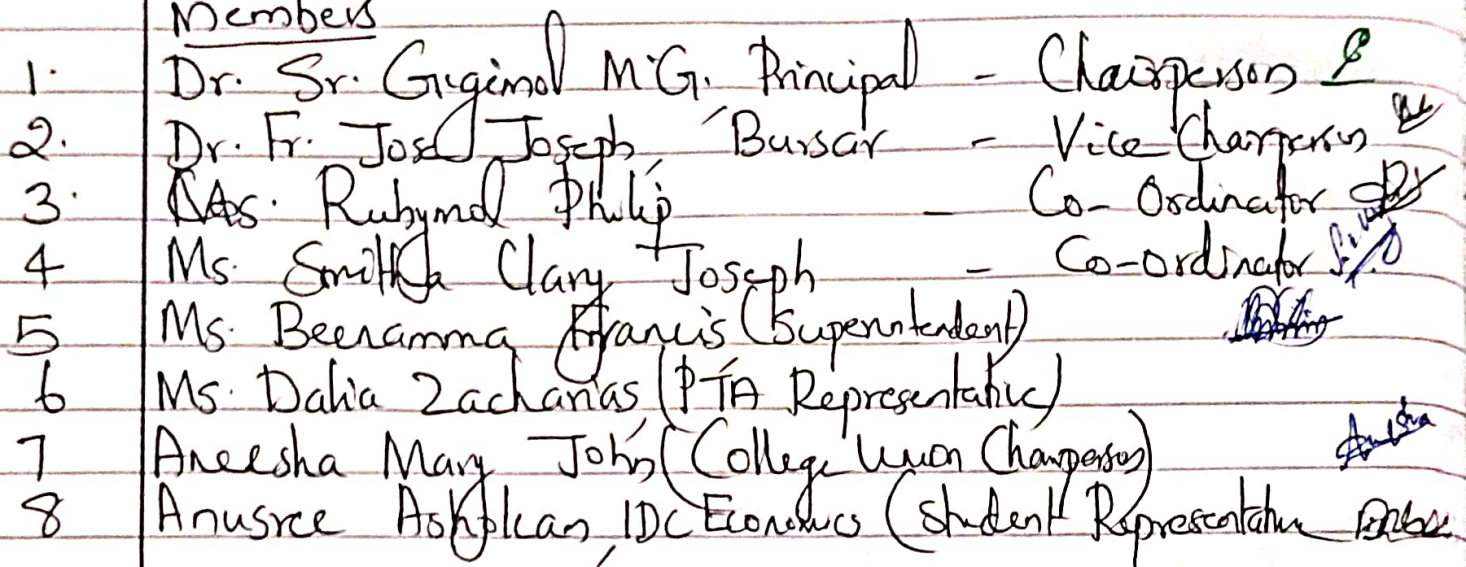 Members
1. Dr. Sr. Gigimol M.G. Principal - Chairperson
2. Dr. Fr. Jose Joseph, Bursar - Vice Chairperson
3. Ms. Rubymol Philip - Co-Ordinator
4 Ms. Smitha Clary Joseph - Co-ordinator
5 Ms. Beenamma Francis (Superintendent)
6 Ms. Dalia Zacharias (PTA Representative)
7 Aneesha Mary John (College Union Chairperson)
8 Anusree Ashokan, IDC Economics (Student Representative